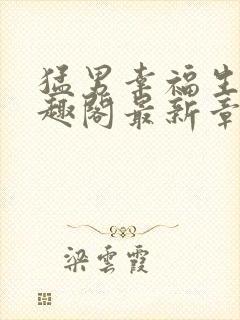 猛男幸福生
趣閣最新章
梁雲霞